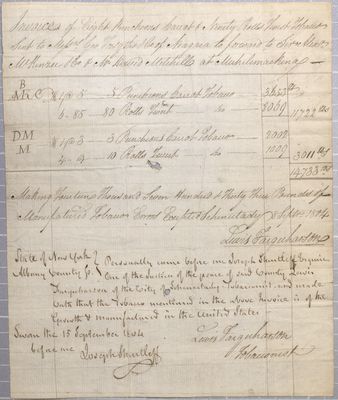 Invoice of Eight Puncheons Carrot & Ninety Rolls Twist Tobacco
Sent to Messrs Geo Forsyth & Co of Niagara to forward to Sir Alexr
McKenzie & Co & Mr David Mitchell at Michilimackinac
B
M C No 1 @ 5 5 Puncheons Carrot Tobacco 3653 lbs
6-85 80 Rolls Twist do 8069 11722 lbs
D M
M No 1 @ 3 3 Puncheons Carrot Tobacco 2002
4-9 10 Rolls Twist do 1009 3011 lbs
14733 lbs
Making Fourteen Thousand Seven Hundred & thirty three Pounds of
Manufactured Tobacco Errors Excepted Schenectady 8 Septr 1804
Lewis Farquharson
State of New York } Personally came before me Joseph Shurtleff Esquire
Albany County Ss } One of the Justices of the peace of said County Lewis
Farquharson of the City of Schenectady Tobacconist and made
Oath that the Tobacco mentioned in the above Invoice is of the
Growth & manufactured in the United States
Sworn the 15 September 1804 Lewis Farquharson
before me Joseph Shurtleff Tobacconist